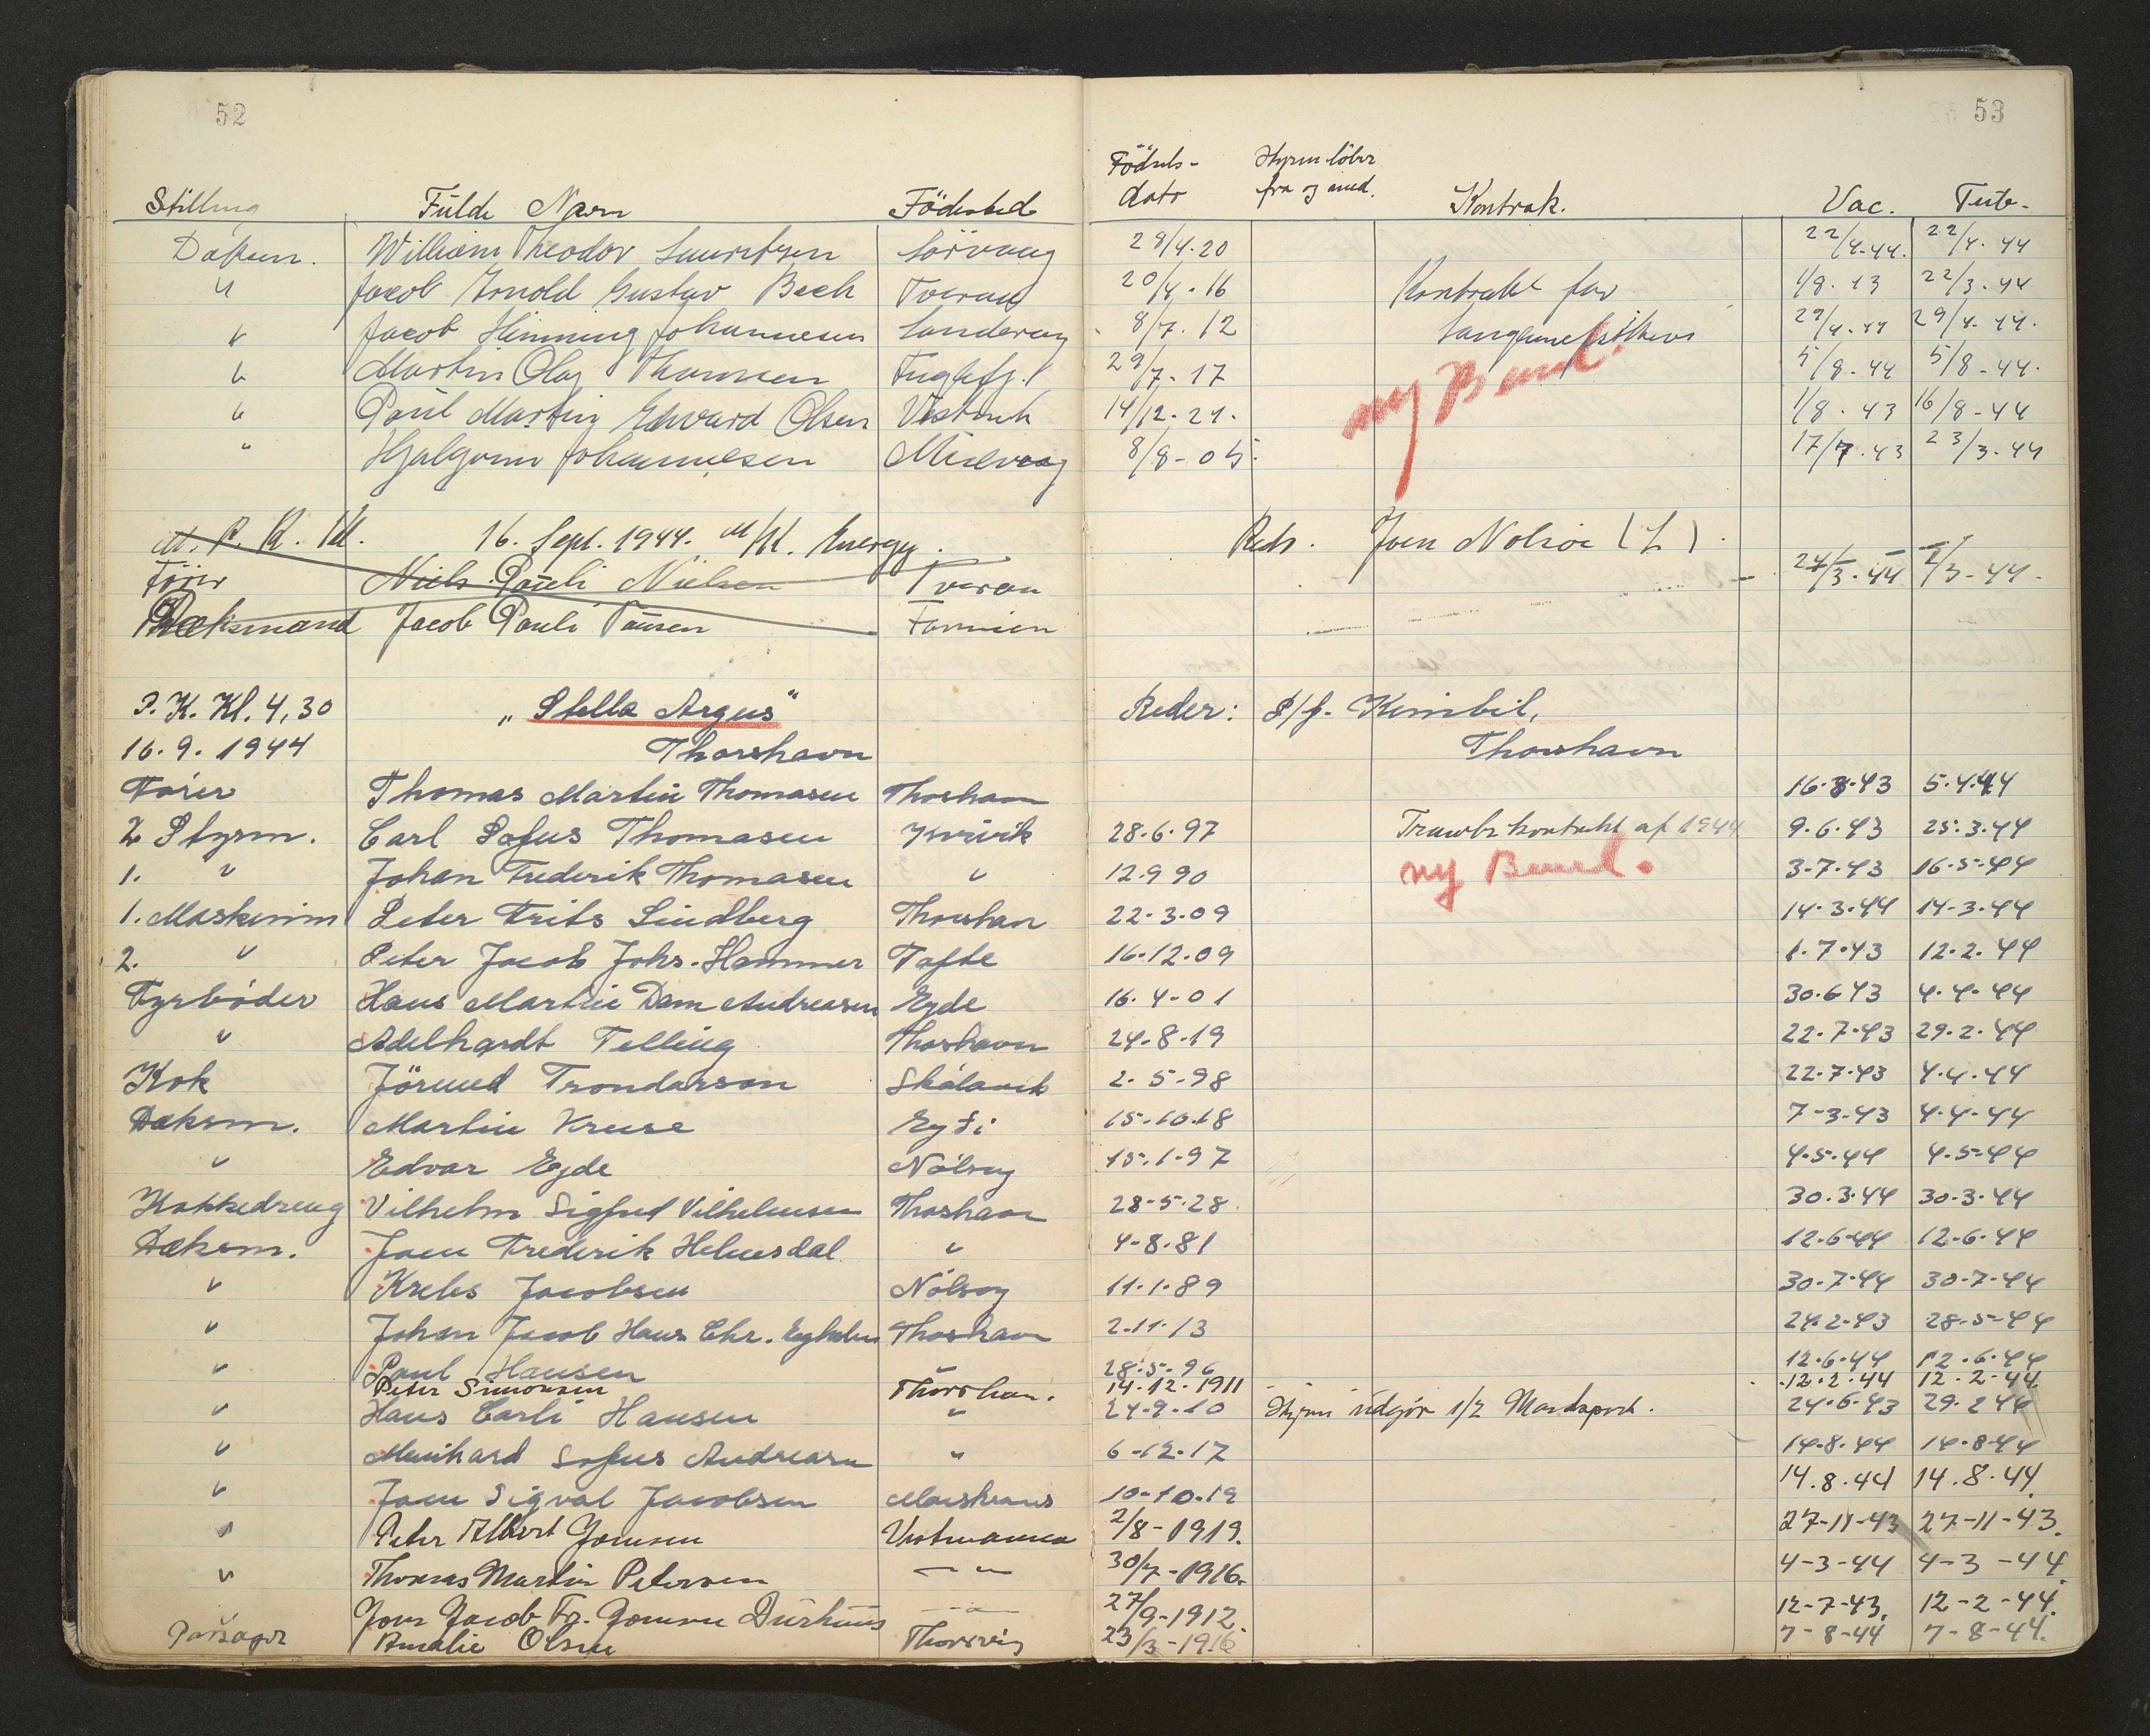 52
53
Stilling Fulde Navn Födested Födsels- dato Hyren löber fra og med. Kontrak. Vac. Tub.
Dæksm. William Theodor Lauritzen Sörvaag 28/4.20 22/4-44. 22/4. 44
" Jacob Arnold Gustav Bech Tveraa 20/4.16 Kontrakt for 1/8. 13 22/3.44
" Jacob Hemming Johannesen Sandevaag 8/7.12 29/4.44 29/4.44.
" Martin Olaf Thomsen Fuglefj. 29/7-17 ny Bemd. 5/8.44 5/8-44.
" Poul Martin Edvard Olsen Vestmh 14/12-21. 1/8.43 16/8-44
" Hjalgrim Johannesen Midvaag 8/8-05. 17/7.43 23/3.44
P. K. Kl. 16. Sept. 1944. M/K. Energy. Reder. Joen Nolsøe (L).
Förer Niels Pauli Nielsen Tveraa 24/3.44 /3-44.
Dæksmand Jacob Pauli Famien
P. K. Kl. 4,30 "Stella Argus" Reder: P/f. Kimbil,
16.9.1944 Thorshavn Thorshavn
Förer Thomas Martin Thomasen Thorshavn 16.8.43 5.4.44
2 Styrm. Carl Sofus Thomasen Kvivik 28.6.97 Trawlr kontrakt af 1944 9.6.43 25.3.44
1. " Johan Frederik Thomasen " 12.9 90 ny Bemd. 3-7.43 16-5-44
1. Maskinm Peter Frits Lindberg Thorshavn 22.3.09 14.3.44 14-3.44
2. " Peter Jacob Johs. Hammer Tofte 16.12.09 1.7.43 12.2.44
Fyrböder Hans Martin Dam Andreasen Ejde 16.4-01 30.6 43 4.4.44
" Adelhardt Telling Thorshavn 24.8.19 22.7.43 29.2.44
Kok Jörmed Trondarson Skálavik 2.5-98 22.7.43 4.4.44
Dæksm. Martin Kruse Eydi 15.10.18 7-3.43 4.4-44
" Edvar Ejde Nólsoy 15.1-97 4.5.44 4.5-44
Kokkedreng Vilhelm Sigfred Vilhelmsen Thorshavn 28-5-28 30.3.44 30.3.44
Dæksm. Joen Frederik Helmsdal " 4-8.81 12-6-44 12-6.44
" Krebs Jacobsen Nólsoy 11.1.89 30.7.44 30-7-44
" Johan Jacob Hans Chr. Eyholm Thorshavn 2.11.13 24.2-43 28.5-44
" Paul Hansen 28.5.96 12.6.44 12.6.44
Peter Simonsen Thorshavn. 14.12.1911 12.2.44 12.2-44
" Hans Carli Hansen " 24-9-10 Hyren udgör 1/2 Mandspart. 24.6.43 29.2 44
" Meinhard Sofus Andreasen " 6-12.17 14.8.44 14.8-44
" Joen Sigval Jacobsen 10-10.19 14.8.44 14.8.44
" Peter Albert Joensen Vestmanna 2/8-1919. 27-11-43 27-11-43.
" Thomas Martin Petersen — " — 30/7-1916. 4-3-44 4-3-44
Jens Jacob Fr. Joensen Durhuus — " — 27/9-1912. 12-7-43. 12-2-44.
Amalie Olsen Thorsvig 23/3-1916 7-8-44 7-8-44.